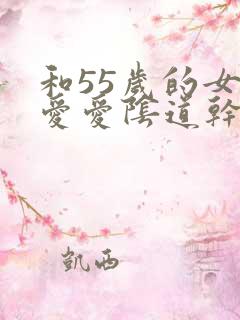 和55歲的女
愛愛陰道幹
凱西